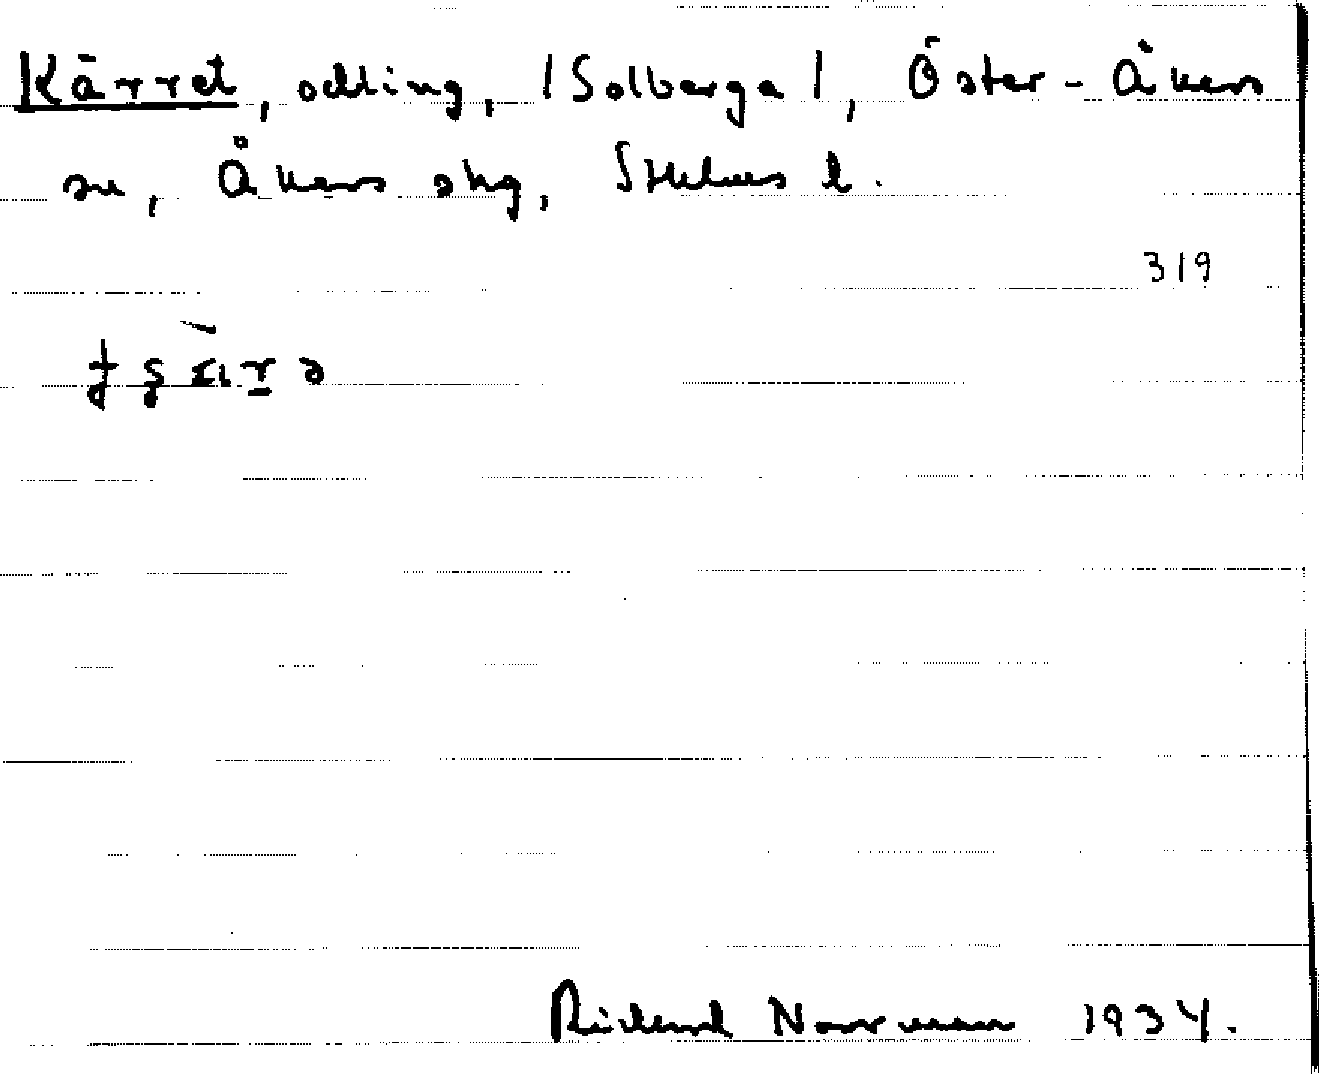 Kärret, odling, /Solberga/, Öster-Åkers
sn, Åkers skg, Sthlms l.
319
Rickard Norrman 1934.